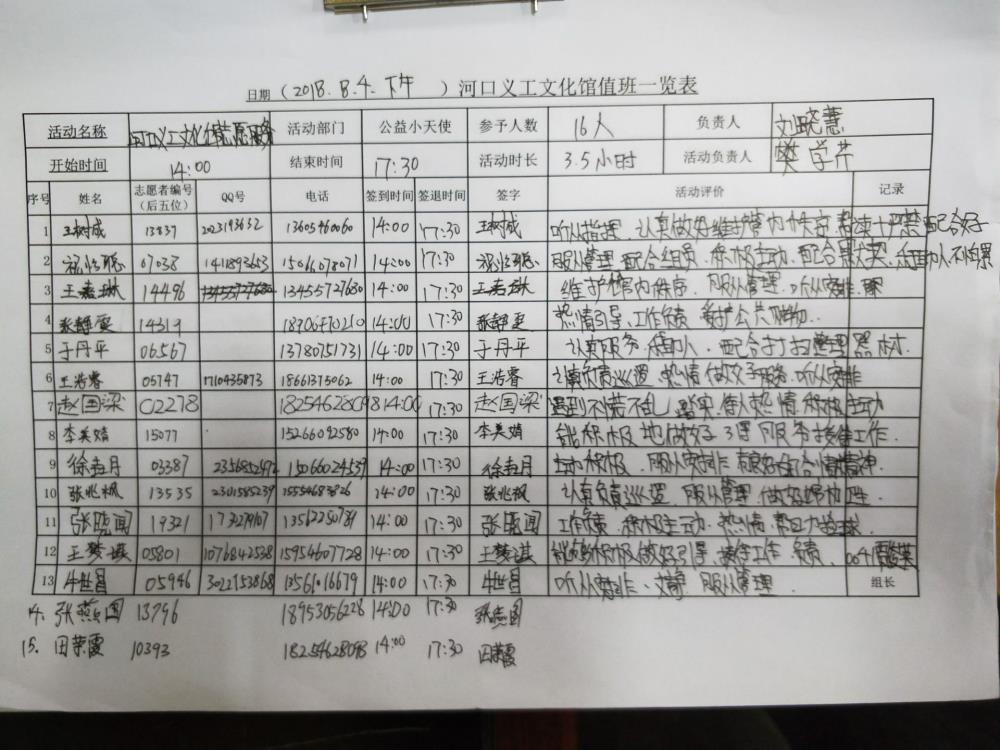 日期（2018.8.4.下午）河口义工文化馆值班一览表
活动名称 河口义工文化馆志愿服务 活动部门 公益小天使 参予人数 16人 负责人 刘晓慧
开始时间 14:00 结束时间 17:30 活动时长 3.5小时 活动负责人 樊学芹
序号 姓名 志愿者编号（后五位） QQ号 电话 签到时间 签退时间 签字 活动评价 记录
1 王树成 13837 2023193652 13605460060 14:00 17:30 王树成 听从指挥、认真做好维护馆内秩序 配合好
2 07038 1411893653 15066078071 14:00 17:30 服从管理 配合组员 积极主动、配合默契
3 王嘉琳 14496 13455727680 14:00 17:30 王嘉琳 维护馆内秩序、服从管理、听从安排
4 张静雯 14319 14:00 17:30 张静雯 热情引导、工作负责 爱护公共财物.
5 于丹平 06567 13780751731 14:00 17:30 于丹平 认真服务、 配合打扫整理
6 王浩睿 05747 1710435873 18661375062 14:00 17:30 王浩睿 认真负责巡逻 热情 做好服务、听从安排
7 赵国梁 02278 18254628098 14:00 17:30 赵国梁 遇到不慌不乱 踏实、待人热情 积极主动
8 李美婧 15077 15266092580 14:00 17:30 李美婧 能积极地做好 服务接待工作.
9 徐垚月 03387 15066024539 14:00 17:30 徐垚月 主动积极、服从安排 精神
10 张兆枫 13535 2301585239 14:00 17:30 张兆枫 认真负责巡逻 服从管理 做好
11 张晓闻 19321 14:00 17:30 张晓闻 工作负责、积极主动、热情
12 王梦淇 05801 1076842538 15954607728 14:00 17:30 王梦淇 能够积极做好引导、接待工作 负责
13 牛世昌 05946 3022153868 13561016679 14:00 17:30 牛世昌 听从安排、 服从管理 组长
14. 张燕国 13796 18953056228 14:00 17:30 张燕国
15. 田荣霞 10393 18254628098 14:00 17:30 田荣霞